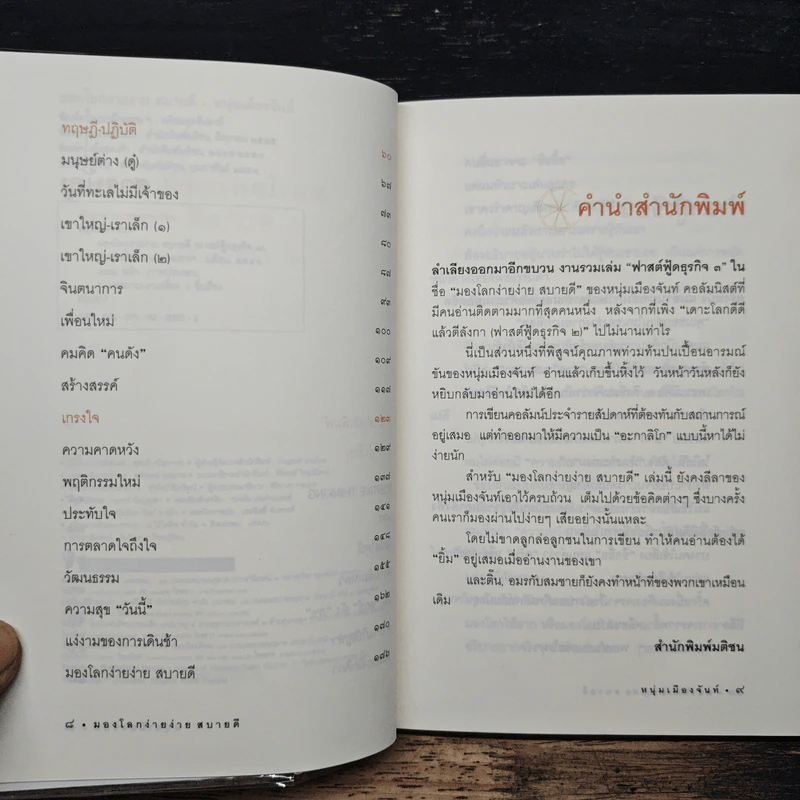 ทฤษฎี-ปฏิบัติ ๖๐
มนุษย์ต่าง (ดู๋) ๖๘
วันที่ทะเลไม่มีเจ้าของ ๗๓
เขาใหญ่-เราเล็ก (๑) ๘๐
เขาใหญ่-เราเล็ก (๒) ๘๗
จินตนาการ ๙๓
เพื่อนใหม่ ๑๐๐
คมคิด “คนดัง” ๑๐๙
สร้างสรรค์ ๑๑๘
เกรงใจ ๑๒๓
ความคาดหวัง ๑๒๙
พฤติกรรมใหม่ ๑๓๘
ประทับใจ ๑๔๑
การตลาดใจถึงใจ ๑๔๘
วัฒนธรรม ๑๕๕
ความสุข “วันนี้” ๑๖๒
แง่งามของการเดินช้า ๑๗๐
มองโลกง่ายง่าย สบายดี ๑๗๖
๘ • มองโลกง่ายง่าย สบายดี
คำนำสำนักพิมพ์
ลำเลียงออกมาอีกขบวน งานรวมเล่ม “ฟาสต์ฟู้ดธุรกิจ ๓” ใน
ชื่อ “มองโลกง่ายง่าย สบายดี” ของหนุ่มเมืองจันท์ คอลัมนิสต์ที่
มีคนอ่านติดตามมากที่สุดคนหนึ่ง หลังจากที่เพิ่ง “เดาะโลกดีดี
แล้วตีลังกา (ฟาสต์ฟู้ดธุรกิจ ๒)” ไปไม่นานเท่าไร
นี่เป็นส่วนหนึ่งที่พิสูจน์คุณภาพท่วมท้นปนเปื้อนอารมณ์
ขันของหนุ่มเมืองจันท์ อ่านแล้วเก็บขึ้นหิ้งไว้ วันหน้าวันหลังก็ยัง
หยิบกลับมาอ่านใหม่ได้อีก
การเขียนคอลัมน์ประจำรายสัปดาห์ที่ต้องทันกับสถานการณ์
อยู่เสมอ แต่ทำออกมาให้มีความเป็น “อะกาลิโก” แบบนี้หาได้ไม่
ง่ายนัก
สำหรับ “มองโลกง่ายง่าย สบายดี” เล่มนี้ ยังคงลีลาของ
หนุ่มเมืองจันท์เอาไว้ครบถ้วน เต็มไปด้วยข้อคิดต่างๆ ซึ่งบางครั้ง
คนเราก็มองผ่านไปง่ายๆ เสียอย่างนั้นแหละ
โดยไม่ขาดลูกล่อลูกชนในการเขียน ทำให้คนอ่านต้องได้
“ยิ้ม” อยู่เสมอเมื่ออ่านงานของเขา
และตี๋น, อมรกับสมชายก็ยังคงทำหน้าที่ของพวกเขาเหมือน
เดิม
สำนักพิมพ์มติชน
หนุ่มเมืองจันท์ • ๙